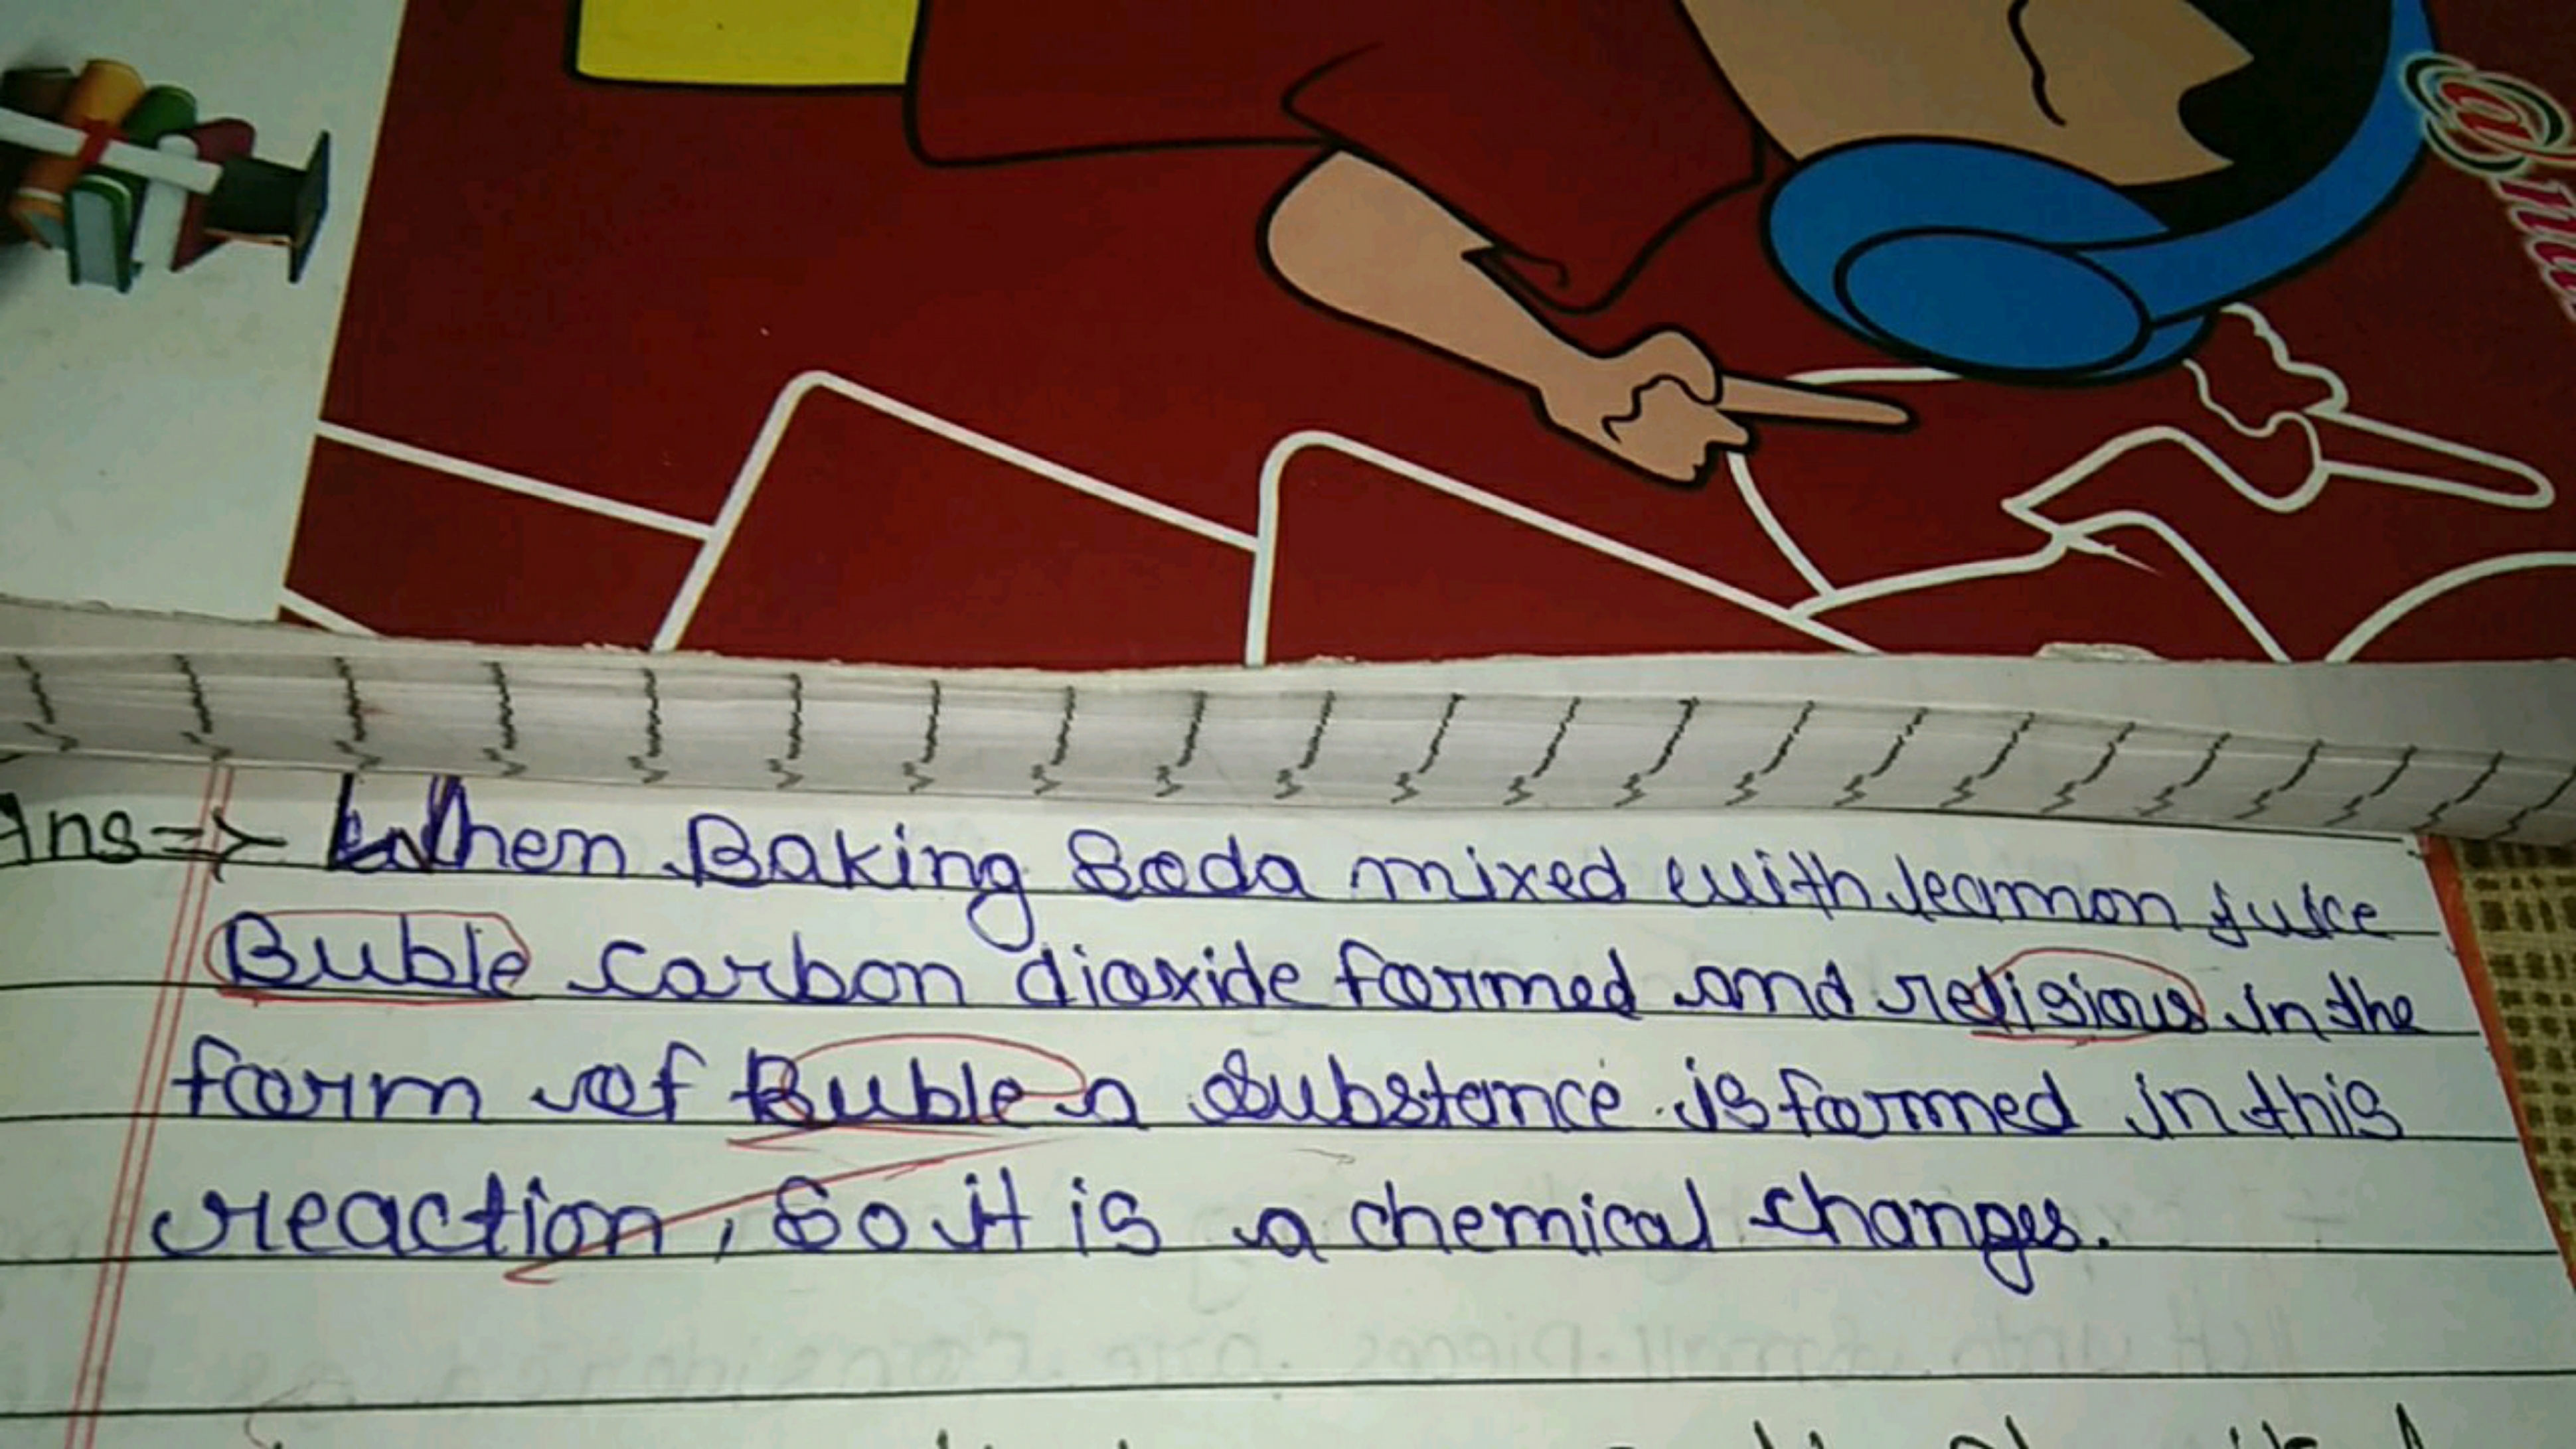 Ans=> When Baking Soda mixed with leamon juice
Buble carbon dioxide formed and religious in the
form of Buble a substance is formed in this
reaction, So it is a chemical changes.